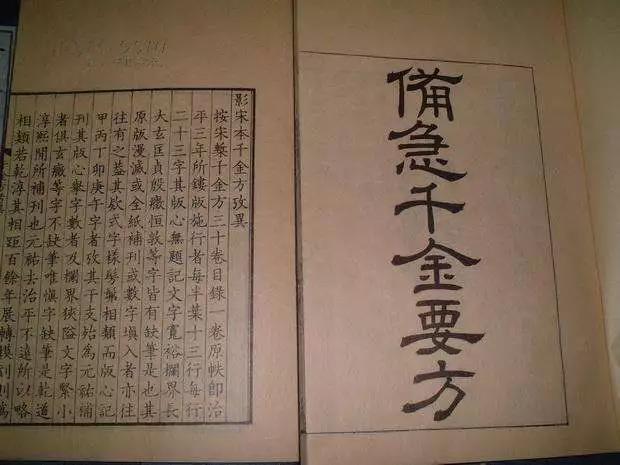 備急千金要方
影宋本千金方攷異
按宋槧千金方三十卷目錄一卷原帙卽治
平三年所鏤版施行者每半葉十三行每行
二十三字其版心無題記文字寬裕欄界長
大玄匡貞殷徵恒敦等字皆有缺筆是也其
原版漫滅或全紙補刊或數字塡入者亦往
往有之葢其欵式字樣髣髴相類而版心記
甲丙丁卯庚午字者攷其干支始爲元祐補
刊其版心舉字數者及欄界狹隘文字緊小
者俱玄徵等字不缺筆唯愼字缺筆是乾道
淳熙間所補刊也元祐去治平不遠所以略
相類若乾淳其相距百餘年展轉摸刻則爲